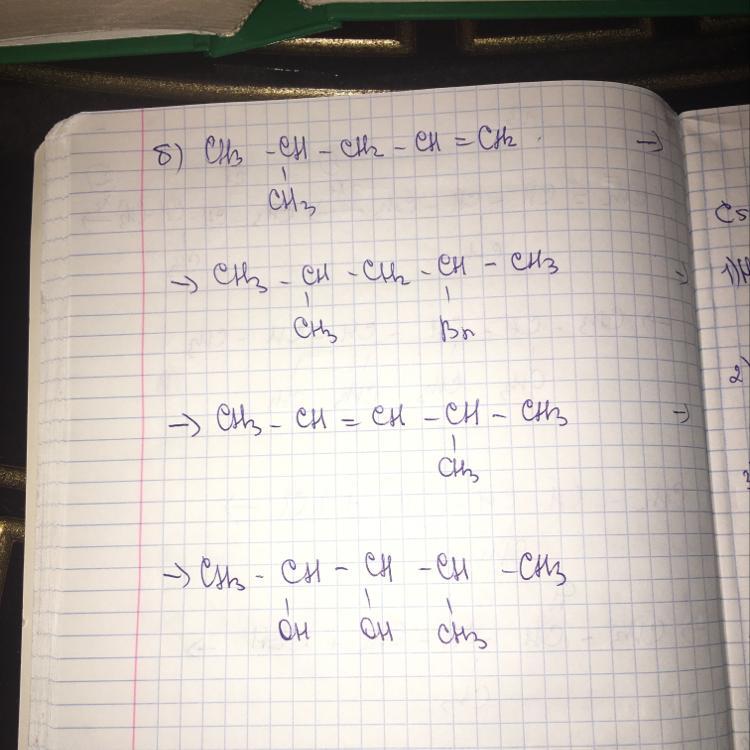 б) CH3 - CH - CH2 - CH = CH2 →
CH3
→ CH3 - CH - CH2 - CH - CH3 →
CH3 Br
→ CH3 - CH = CH - CH - CH3 →
CH3
→ CH3 - CH - CH - CH - CH3
OH OH CH3
C5
1)H
2)